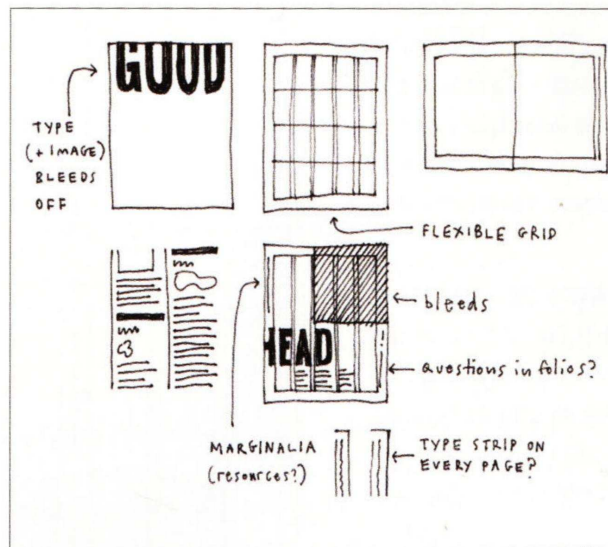 GOOD
TYPE
(+ IMAGE)
BLEEDS
OFF
FLEXIBLE GRID
bleeds
HEAD
Questions in folios?
MARGINALIA
(resources?)
TYPE STRIP ON
EVERY PAGE?